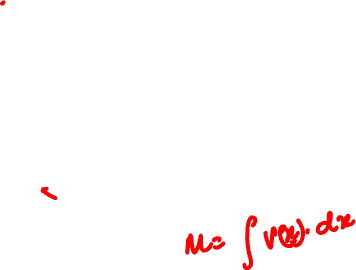 M= ∫ V(x)· dx